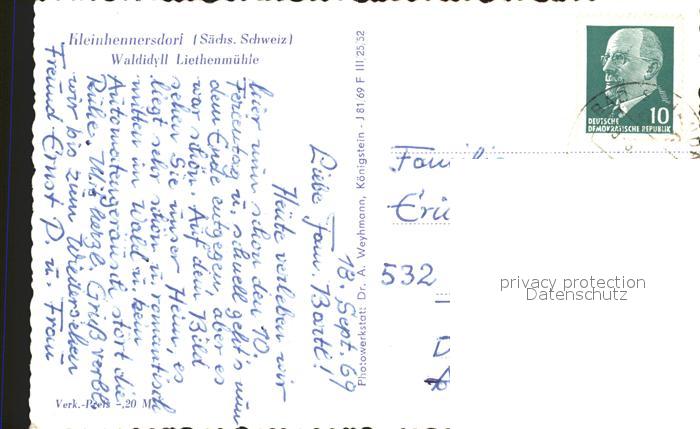 Kleinhennersdorf (Sächs. Schweiz)
Waldidyll Liethenmühle
18. Sept. 69
Liebe Fam. Bartl!
Heute verleben wir
hier nun schon den 10.
Ferientag u. schnell geht's nun
dem Ende entgegen, aber es
war schön. Auf dem Bild
sehen Sie unser Heim, es
liegt sehr schön u. romantisch
mitten im Wald u. kein
Automotengeräusch stört die
Ruhe. Mit herzl. Gruß verbl.
wir bis zum Wiedersehen
Freund Ernst P. u. Frau
Verk.-Preis -,20 M
Photowerkstatt: Dr. A. Weyhmann, Königstein - J 81 69 F III 25 52
10
DEUTSCHE
DEMOKRATISCHE REPUBLIK
Fami
Eri
532
D
privacy protection
Datenschutz